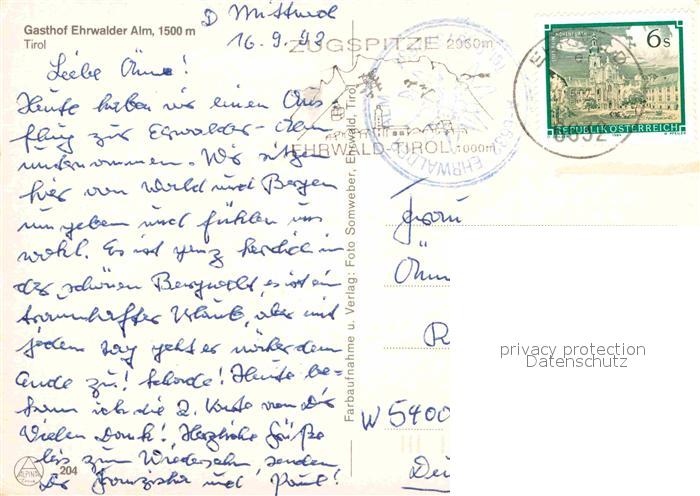 Gasthof Ehrwalder Alm, 1500 m
Tirol
D Mittwoch
16.9.92
Liebe Omi!
Heute haben wir einen Aus-
flug zur Erwalder-Alm
unternommen. Wir sitzen
hier von Wald und Bergen
umgeben und fühlen uns
wohl. Es ist ganz herrlich in
der schönen Bergwelt, es ist ein
traumhafter Urlaub, aber mit
jedem Tag geht er näher dem
Ende zu! Schade! Heute be-
kam ich die 2. Karte von Dir
Vielen Dank! Herzliche Grüße
bis zum Wiedersehn, senden
Dir Franziska und Paul!
ALPINA
204
Farbaufnahme u. Verlag: Foto Somweber, Ehrwald, Tirol
ZUGSPITZE 2960m
EHRWALD-TIROL 1000m
EHRWALD
6632
6 s
REPUBLIK ÖSTERREICH
Frau
R
W 5400
privacy protection
Datenschutz